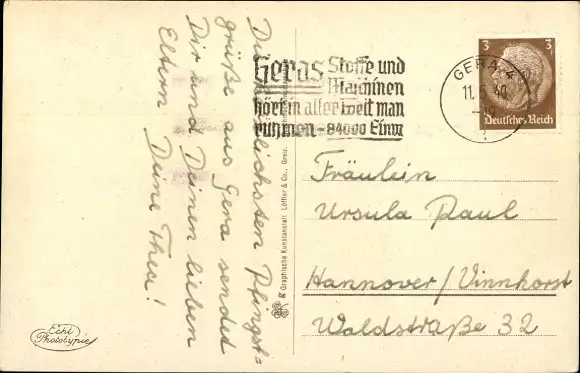 Die herzlichsten Pfingst-
grüße aus Gera sendet
Dir und Deinen lieben
Eltern Deine Theu!
Geras Stoffe und
Maschinen
hört in aller Welt man
rühmen - 84000 Einw
GERA 4
11.5.40
3 3
Deutsches Reich
Fräulein
Ursula Paul
Hannover/Vinnhorst
Waldstraße 32
Graphische Kunstanstalt Löffler & Co., Greiz
Echt
Phototypie